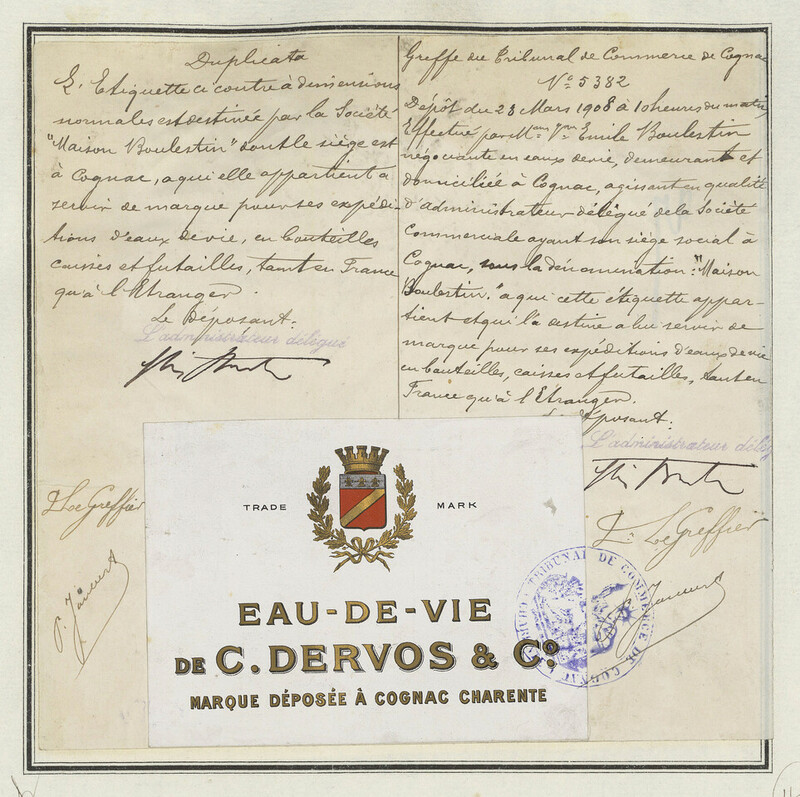 Duplicata
L'Etiquette ci contre à dimensions
normales est destinée par la Société
"Maison Boulestin" dont le siège est
à Cognac, a qui elle appartient a
servir de marque pour ses expédi-
tions d'eaux de vie, en bouteilles
caisses et futailles, tant en France
qu'à l'Etranger.
Le Déposant:
L'administrateur délégué
Le Greffier
Greffe du Tribunal de Commerce de Cognac
No 5382
Dépôt du 23 Mars 1908 à 10 heures du matin,
Effectué par Mme Vve Emile Boulestin
négociante en eaux de vie, demeurant et
domiciliée à Cognac, agissant en qualité
d'administrateur délégué de la Société
Commerciale ayant son siège social à
Cognac, sous la dénomination: "Maison
Boulestin" a qui cette étiquette appar-
tient et qui l'a destine a lui servir de
marque pour ses expéditions d'eaux de vie
en bouteilles, caisses et futailles, tant en
France qu'à l'Etranger.
Déposant:
L'administrateur délég
Le Greffier
TRADE MARK
EAU-DE-VIE
DE C. DERVOS & Co.
MARQUE DÉPOSÉE À COGNAC CHARENTE
TRIBUNAL DE COMMERCE DE COGNAC